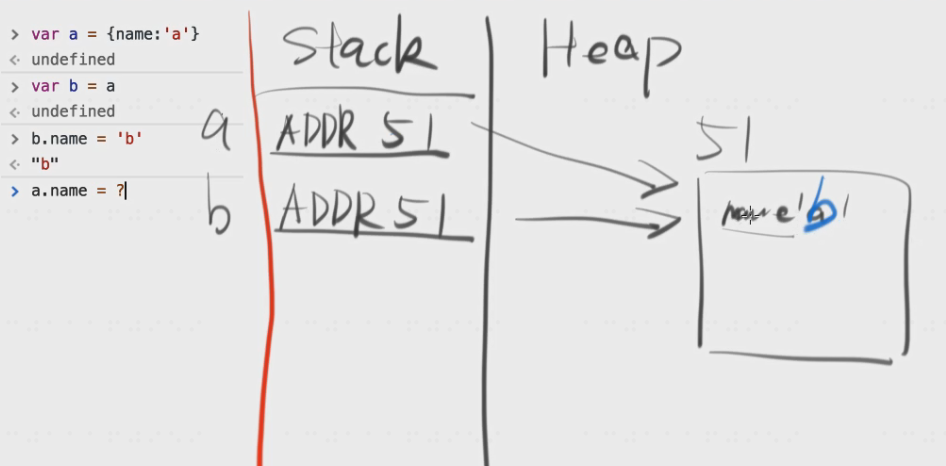 > var a = {name:'a'}
<· undefined
> var b = a
<· undefined
> b.name = 'b'
<· "b"
> a.name = ?
Stack
Heap
a
ADDR 51
b
ADDR 51
51
name 'b'